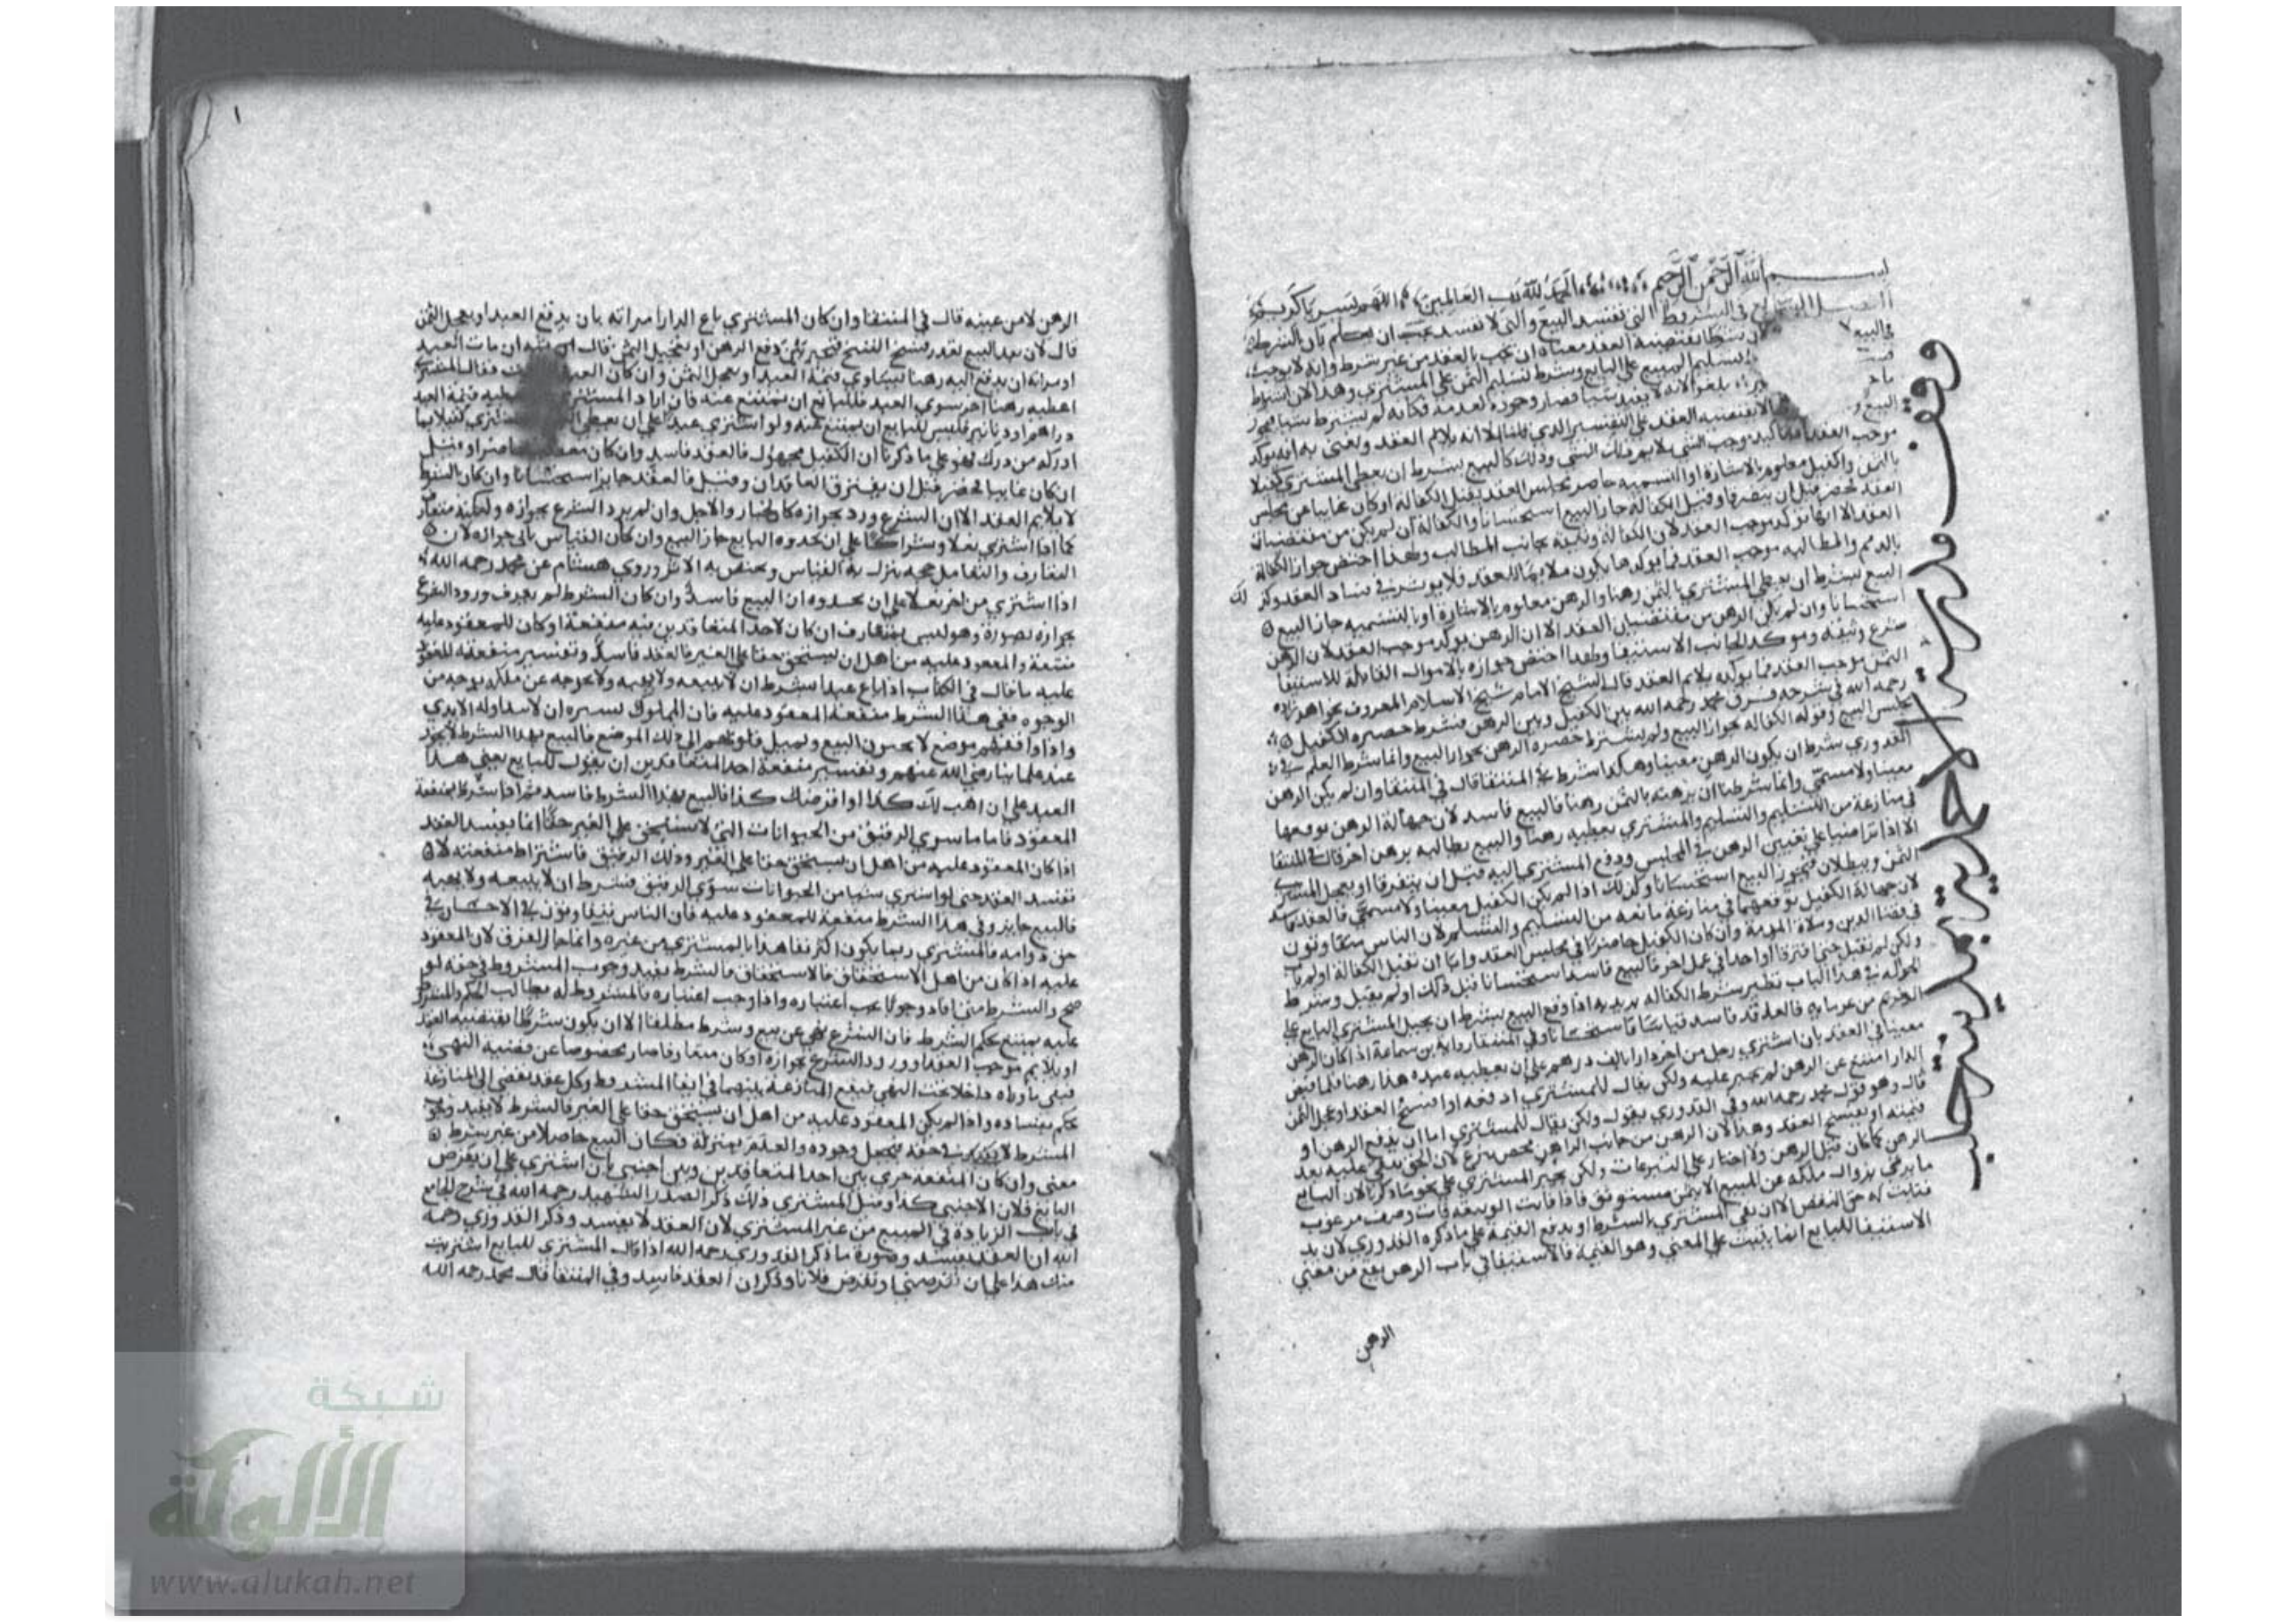 بسم الله الرحمن الرحيم الحمد لله رب العالمين اللهم يسر يا كريم
الفصل السابع في الشروط التي تفسد البيع والتي لا تفسد يجب ان يعلم بان الشرط
في البيع لا شرطا يقتضيه العقد معناه ان يجب بالعقد من غير شرط وانه لا يوجب
لتسليم المبيع علي البايع وشرط تسليم الثمن علي المشتري وهذا لان اشتراط
يلغو لانه لا يفيد شيا فصار وجوده كعدمه فكانه لم يشترط شيا
البيع لا يقتضيه العقد علي التفسير الذي قلنا الا انه يلايم العقد ونعني به انه يوكد
موجب العقد وتاكيد موجب الشي يلايم ذلك الشي وذلك كالبيع بشرط ان يعطي المشتري كفيلا
بالثمن والكفيل معلوم بالاشارة او التسمية حاضر مجلس العقد يقبل الكفالة او كان غايبا عن مجلس
العقد فحضر قبل ان يتفرقا وقبل الكفالة جاز البيع استحسانا والكفالة ان لم يكن من مقتضيات
العقد الا انها توكد موجب العقد لان الكفالة وثيقة بجانب المطالب ولهذا اختص جواز الكفالة
بالدمم والمطالبة موجب العقد فما يوكدها يكون ملايما للعقد فلا يوثر في فساد العقد وكذلك
البيع بشرط ان يعطي المشتري بالثمن رهنا والرهن معلوم بالاشارة او بالتسمية جاز البيع
استحسانا وان لم يكن الرهن من مقتضيات العقد الا ان الرهن يوكد موجب العقد لان الرهن
شرع وثيقة وموكدا لجانب الاستيفا ولهذا اختص جوازه بالاموال القابلة للاستيفا
الثمن موجب العقد فما يوكده يلايم العقد قال الشيخ الامام شيخ الاسلام المعروف بخواهر زاده
رحمه الله في شرحه فرق محمد رحمه الله بين الكفيل وبين الرهن فشرط حضره الكفيل
مجلس البيع وقبوله الكفالة بجواز البيع ولم يشترط حضره الرهن بجواز البيع وانما شرط العلم في
القدوري شرط ان يكون الرهن معينا وهكذا شرط في المنتقا قال في المنتقا وان لم يكن الرهن
معينا ولا مسمي وانما شرطا ان يرهنه بالثمن رهنا فالبيع فاسد لان جهالة الرهن توقعها
في منازعة من التسليم والتسلم والمشتري يعطيه رهنا والبيع يطالبه برهن اخر قال في المنتقا
الا اذا تراضيا علي تعيين الرهن في المجلس ودفع المشتري اليه قبل ان يتفرقا او يعجل المشتري
الثمن ويبطلان فيجوز البيع استحسانا وكذلك اذا لم يكن الكفيل معينا ولا مسمي فالعقد فاسد
لان جهالة الكفيل توقعهما في منازعة مانعة من التسليم والتسلم لان الناس يتفاوتون
في قضا الدين وملاة الذمة وان كان الكفيل حاضرا في مجلس العقد وابا ان يقبل الكفالة او لم ياب
ولكن لم يقبل حتي افترقا او اخذا في عمل اخر فالبيع فاسد استحسانا قبل ذلك او لم يقبل وشرط
الحوالة في هذا الباب نظير شرط الكفالة يريد به اذا وقع البيع بشرط ان يحيل المشتري البايع علي
غريم من غرمايه فالعقد فاسد قياسا واستحسانا وفي المنتقا رواية بن سماعة اذا كان الرهن
معينا في العقد بان اشتري رجل من اخر دارا بالف درهم علي ان يعطيه عبده هذا رهنا فلما قبض
الدار امتنع عن الرهن لم يجبر عليه ولكن يقال للمشتري ادفعه او افسخ العقد او عجل الثمن
قال وهو قول محمد رحمه الله وفي القدوري يقول ولكن يقال للمشتري اما ان يدفع الرهن او
قيمته او يفسخ العقد وهذا لان الرهن من جانب الراهن محض تبرع لان الحق يبقي عليه بعد
الرهن كما كان قبل الرهن ولا اجبار علي التبرعات ولكن يخير المشتري علي نحو ما ذكرنا لان البايع
ما رضي بزوال ملكه عن المبيع الا بثمن مستوثق فاذا فاتت الوثيقه فات وصف مرغوب
فثابت له حق النقض الا ان يفي المشتري بالشرط او يدفع القيمة علي ما ذكره القدوري لان يد
الاستيفا للبايع انما يثبت علي المعني وهو القيمة فالاستيفا في باب الرهن يقع من معني
الرهن
وقف مدرسة الاحمدية بمدينة حلب
الرهن لا من عينه قال في المنتقا وان كان المشتري باع الدار امراته بان يدفع العبد او يعجل الثمن
قال لان بعد البيع تعذر فسخ الفسخ فتحير بين دفع الرهن او تعجيل الثمن قال ان مات العبد
او مراته ان يدفع اليه رهنا يساوي قيمة العبد او يعجل الثمن وان كان العبد فقال المشتري
اعطيه رهنا اخر سوي العبد فللبايع ان يمتنع عنه فان اراد المشتري يعطيه قيمة العبد
دراهم او دنانير فليس للبايع ان يمتنع عنه ولو اشتري عبدا علي ان يعطي المشتري كفيلا بما
ادركه من درك فهو علي ما ذكرنا ان الكفيل مجهول فالعقد فاسد وان كان حاضرا وقبل
ان كان غايبا فحضر قبل ان يفترق العاقدان وقبل فالعقد جايز استحسانا وان كان الشرط
لا يلايم العقد الا ان الشرع ورد بجوازه كالخيار والاجل وان لم يرد الشرع بجوازه ولكنه متعارف
كما اذا اشتري نعلا وشراكا علي ان يحذوه البايع جاز البيع وان كان القياس يابي جوازه لان
التعارف والتعامل حجة يترك به القياس ويختص به الاثر وروي هشام عن محمد رحمه الله
اذا اشتري من اخر نعلا علي ان يحذوه ان البيع فاسد وان كان الشرط لم يعرف ورود الشرع
بجوازه بصورة وهو ليس بمتعارف ان كان لاحد المتعاقدين فيه منفعة او كان للمعقود عليه
منفعة والمعقود عليه من اهل ان يستحق حقا علي الغير فالعقد فاسد وتفسير منفعة المعقود
عليه ما قال في الكتاب اذا باع عبدا بشرط ان لا يبيعه ولا يهبه ولا يخرجه عن ملكه بوجه من
الوجوه ففي هذا الشرط منفعة المعقود عليه فان المملوك يسره ان لا تتداوله الايدي
عند علماينا رضي الله عنهم وتفسير منفعة احد المتعاقدين ان يقول للبايع يعني هذا
العبد علي ان اهب لك كذا او اقرضك كذا فالبيع بهذا الشرط فاسد ثم اذا شرط منفعة
المعقود فاما ما سوي الرقيق من الحيوانات التي لا يستحق علي الغير حقا انما يفسد العقد
اذا كان المعقود عليه من اهل ان يستحق حقا علي الغير وذلك الرقيق فاشتراط منفعته لان
تفسد العقد حتي لو اشتري شيا من الحيوانات سوي الرقيق بشرط ان لا يبيعه ولا يهبه
فالبيع جايز وفي هذا الشرط منفعة للمعقود عليه فان الناس يتفاوتون في
عليه اذا كان من اهل الاستحقاق فالاستحقاق فالشرط يفيد وجوب المشروط في حقه لو
صح والشرط متي افاد وجوبا يجب اعتباره واذا وجب اعتباره فالمشروط له يطالب
عليه يمتنع بحكم الشرط فان الشرع نهي عن بيع وشرط مطلقا الا ان يكون شرطا يقتضيه العقد
او يلايم موجب العقد او ورود الشرع بجوازه او كان متعارفا صار مخصوصا عن قضية النهي
فبقي ما وراه داخلا تحت النهي فيقع المنازعة بينهما في ايفا المشروط وكل عقد يفضي الي المنازعة
حكم بفساده واذا لم يكن المعقود عليه من اهل ان يستحق حقا علي الغير فالشرط لا يفيد وجوب
المشرط في حقه فيجعل وجوده والعدم بمنزلة فكان البيع حاصلا من غير شرط
معني وان كان المنفعة جري بين احد المتعاقدين وبين اجنبي بان اشتري علي ان يقرض
البايع فلان الاجنبي كذا وقبل المشتري ذلك ذكر الصدر الشهيد رحمه الله في شرح الجامع
في باب الزيادة في المبيع من غير المشتري لان العقد لا يفسد وذكر القدوري رحمه
الله ان العقد يفسد وصورة ما ذكر القدوري رحمه الله اذا قال المشتري للبايع اشتريت
منك هذا علي ان تقرضني او تقرض فلانا وذكر ان العقد فاسد وفي المنتقا قال محمد رحمه الله
شبكة
الألوكة
www.alukah.net